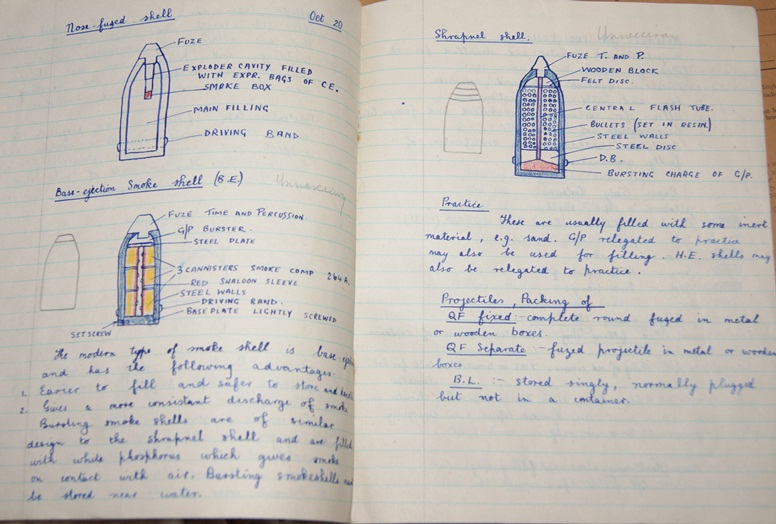 Nose-fuzed shell Oct 20
FUZE
EXPLODER CAVITY FILLED
WITH EXPR. BAGS OF CE.
SMOKE BOX
MAIN FILLING
DRIVING BAND
Base-ejection Smoke shell (B.E)
Unnecessary
FUZE TIME AND PERCUSSION.
G/P BURSTER.
STEEL PLATE
3 CANNISTERS SMOKE COMP
RED SHALOON SLEEVE
STEEL WALLS
DRIVING BAND.
BASE PLATE LIGHTLY SCREWED
SET SCREW
The modern type of smoke shell is base
and has the following advantages.
1. Easier to fill and safer to store and
2. Gives a more consistent discharge of smoke
Bursting smoke shells are of similar
design to the shrapnel shell and are filled
with white phosphorus which gives smoke
on contact with air. Bursting smokeshells
be stored near water.
Shrapnel shell. Unnecessary
FUZE T. AND P.
WOODEN BLOCK
FELT DISC.
CENTRAL FLASH TUBE.
BULLETS (SET IN RESIN.)
STEEL WALLS
STEEL DISC
D.B.
BURSTING CHARGE OF G/P.
Practice
These are usually filled with some inert
material, e.g. sand. G/P relegated to practice
may also be used for filling. H.E. shells may
also be relegated to practice.
Projectiles, Packing of
QF fixed :- complete round fuzed in metal
or wooden boxes.
QF Separate :- fuzed projectile in metal or wooden
boxes
B.L. :- stored singly, normally plugged
but not in a container.